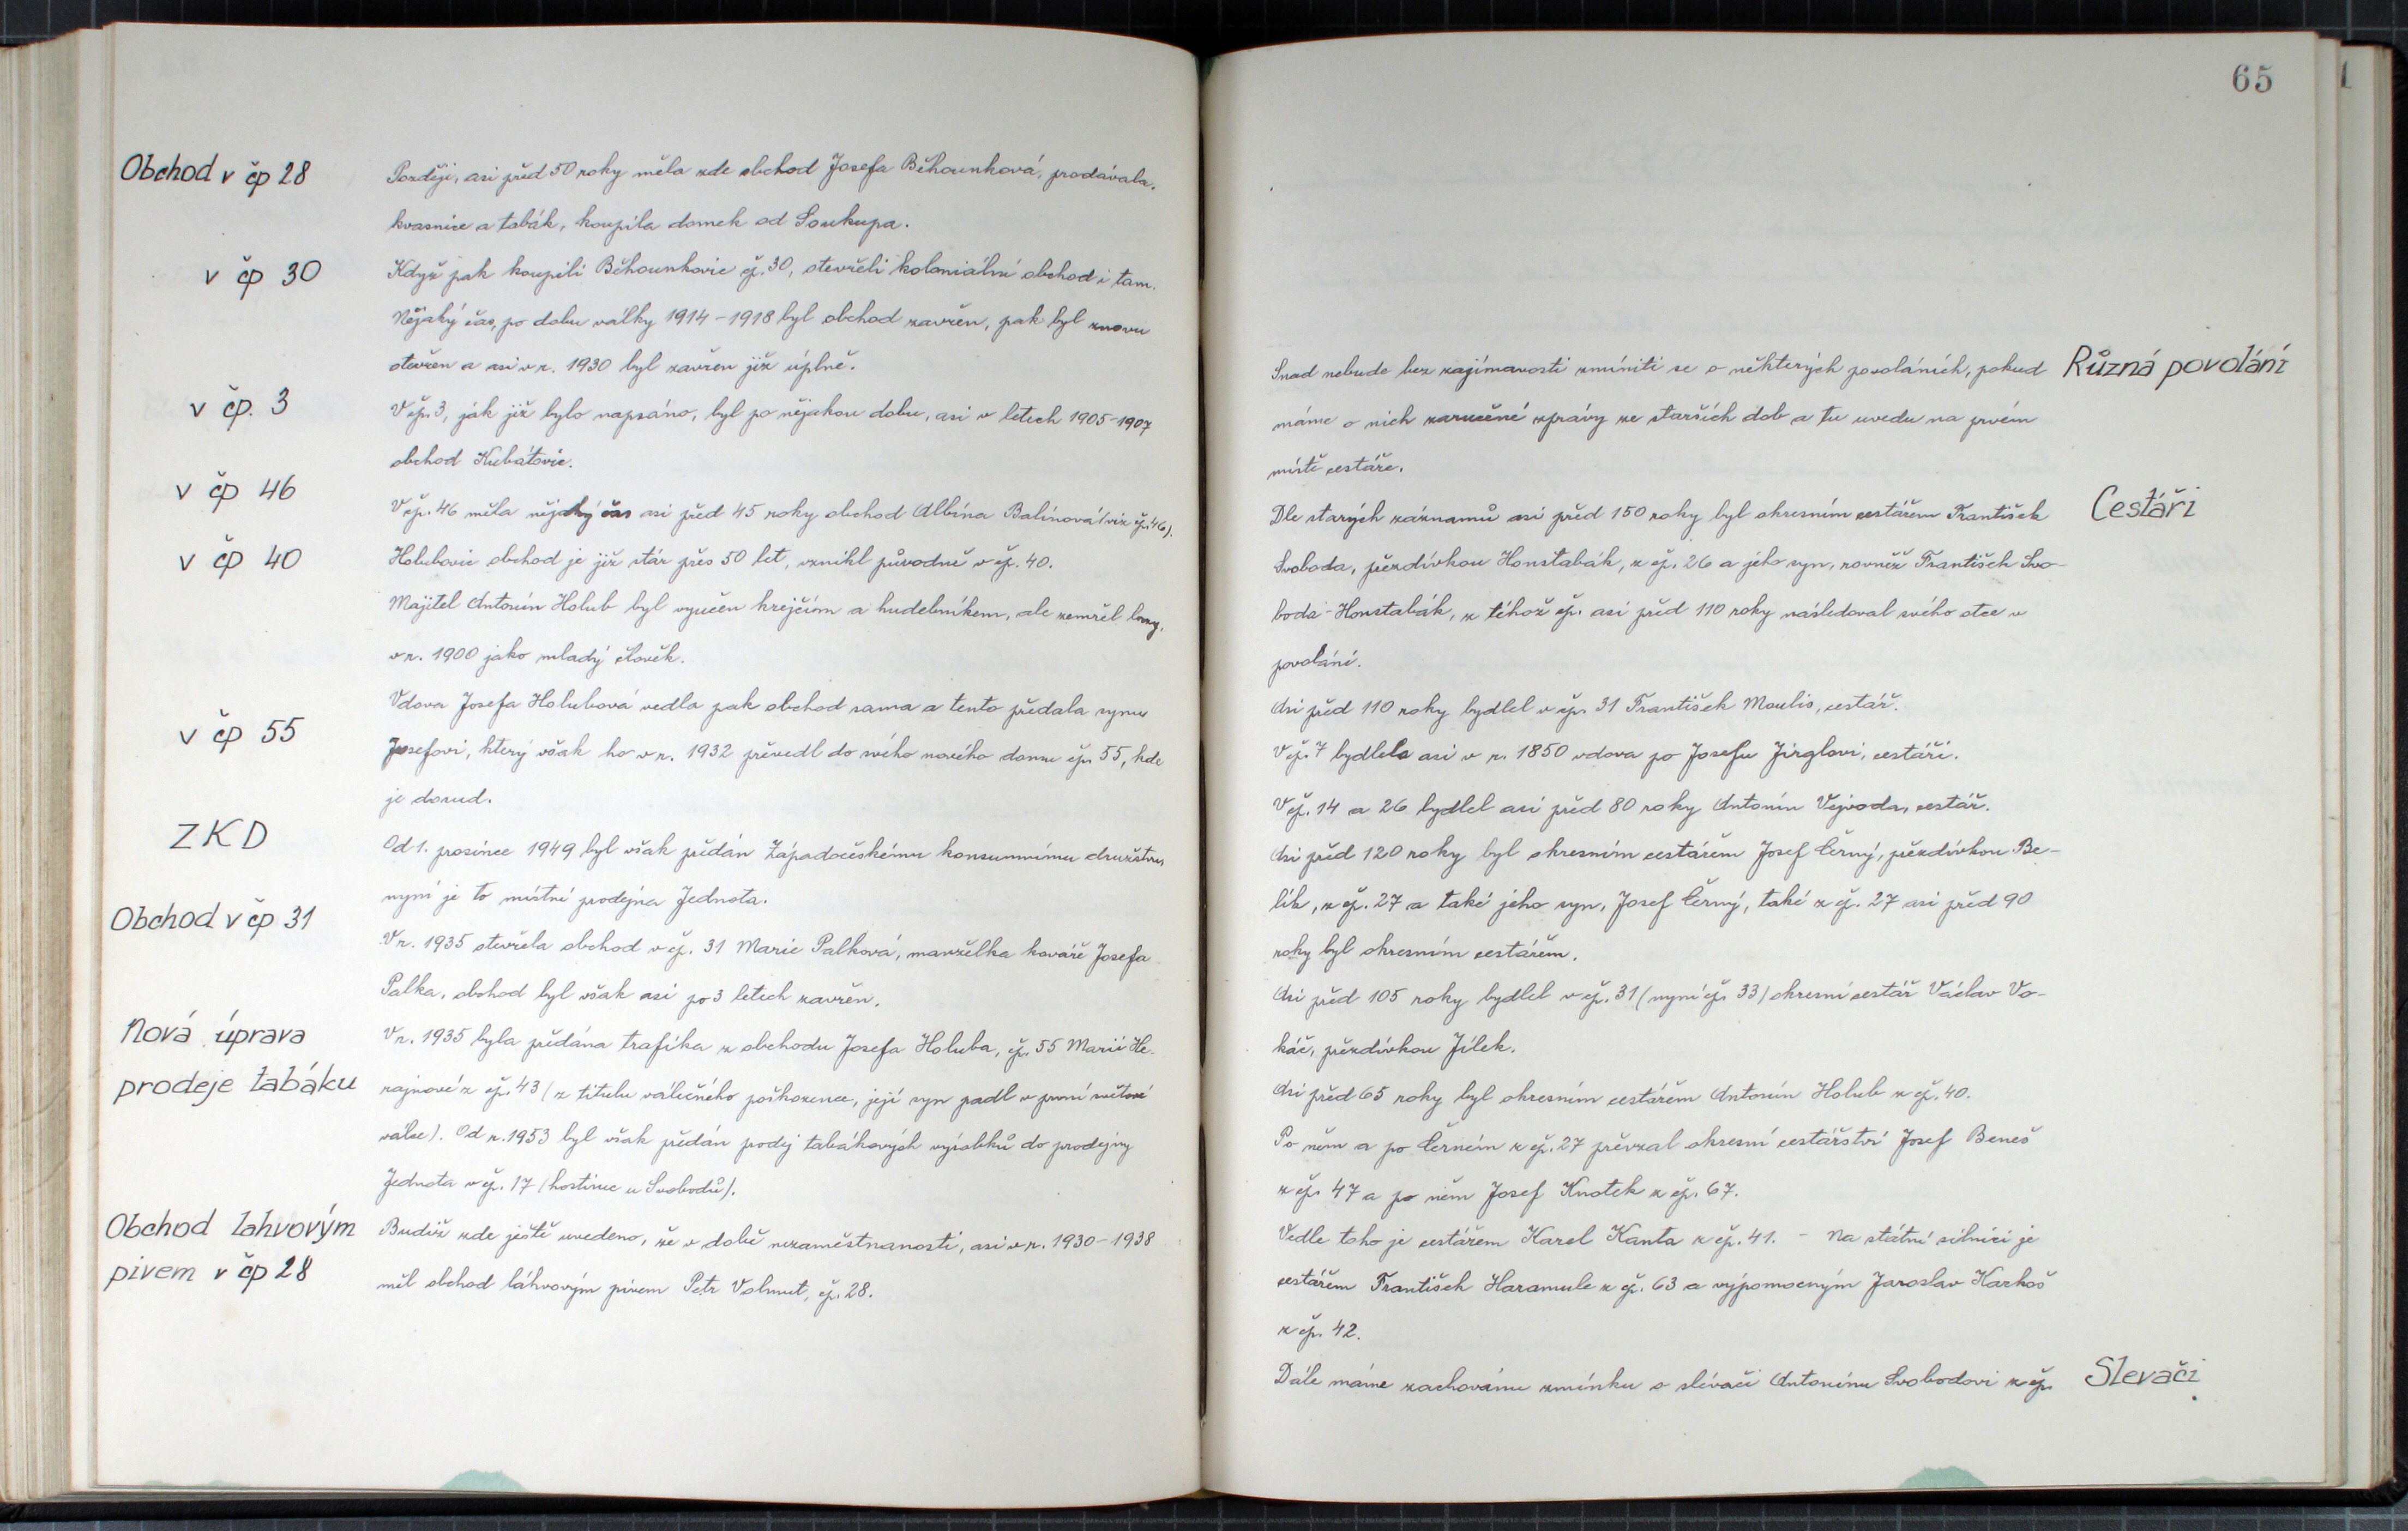 Obchod v čp 28
Později, asi před 50 roky měla zde obchod Josefa Běhounková, prodávala
kvasnice a tabák, koupila domek od Soukupa.
v čp 30
Když pak koupili Běhounkovic čp. 30, otevřeli koloniální obchod i tam.
Nějaký čas, po dobu války 1914-1918 byl obchod zavřen, pak byl znovu
otevřen a asi v r. 1930 byl zavřen již úplně.
v čp. 3
V čp. 3, jak již bylo napsáno, byl po nějakou dobu, asi v letech 1905-1907
obchod Kubátovic.
v čp 46
V čp. 46 měla nějaký čas asi před 45 roky obchod Albína Balínová (viz čp. 46).
v čp 40
Holubovic obchod je již stár přes 50 let, vznikl původně v čp. 40.
Majitel Antonín Holub byl vyučen krejčím a hudebníkem, ale zemřel brzy,
v r. 1900 jako mladý člověk.
Vdova Josefa Holubová vedla pak obchod sama a tento předala synu
v čp 55
Josefovi, který však ho v r. 1932 převedl do svého nového domu čp. 55, kde
je dosud.
ZKD
Od 1. prosince 1949 byl však předán Západočeskému konsumnímu družstvu,
nyní je to místní prodejna Jednota.
Obchod v čp 31
V r. 1935 otevřela obchod v čp. 31 Marie Palková, manželka kováře Josefa
Palka, obchod byl však asi po 3 letech zavřen.
Nová úprava
V r. 1935 byla předána trafika z obchodu Josefa Holuba, čp. 55 Marii He-
prodeje tabáku
rajnové z čp. 43 (z titulu válečného poškozence, její syn padl v první světové
válce). Od r. 1953 byl však předán prodej tabákových výrobků do prodejny
Jednota v čp. 17 (hostinec u Svobodů).
Obchod lahvovým
Budiž zde ještě uvedeno, že v době nezaměstnanosti, asi v r. 1930-1938
pivem v čp 28
měl obchod láhvovým pivem Petr Volmut, čp. 28.
65
Různá povolání
Snad nebude bez zajímavosti zmíniti se o některých povoláních, pokud
máme o nich zaručené zprávy ze starších dob a tu uvedu na prvém
místě cestáře.
Cestáři
Dle starých záznamů asi před 150 roky byl okresním cestářem František
Svoboda, přezdívkou Honstabák, z čp. 26 a jeho syn, rovněž František Svo-
boda-Honstabák, z téhož čp. asi před 110 roky následoval svého otce v
povolání.
Asi před 110 roky bydlel v čp. 31 František Moulis, cestář.
V čp. 7 bydlela asi v r. 1850 vdova po Josefu Jirglovi, cestáři.
V čp. 14 a 26 bydlel asi před 80 roky Antonín Vejvoda, cestář.
Asi před 120 roky byl okresním cestářem Josef Černý, přezdívkou Be-
lík, z čp. 27 a také jeho syn, Josef Černý, také z čp. 27 asi před 90
roky byl okresním cestářem.
Asi před 105 roky bydlel v čp. 31 (nyní čp. 33) okresní cestář Václav Vo-
káč, přezdívkou Jílek.
Asi před 65 roky byl okresním cestářem Antonín Holub z čp. 40.
Po něm a po Černém z čp. 27 převzal okresní cestářství Josef Beneš
z čp. 47 a po něm Josef Knotek z čp. 67.
Vedle toho je cestářem Karel Kanta z čp. 41. - Na státní silnici je
cestářem František Haramule z čp. 63 a výpomocným Jaroslav Karkoš
z čp. 42.
Slevači
Dále máme zachovánu zmínku o slévači Antonínu Svobodovi z čp.